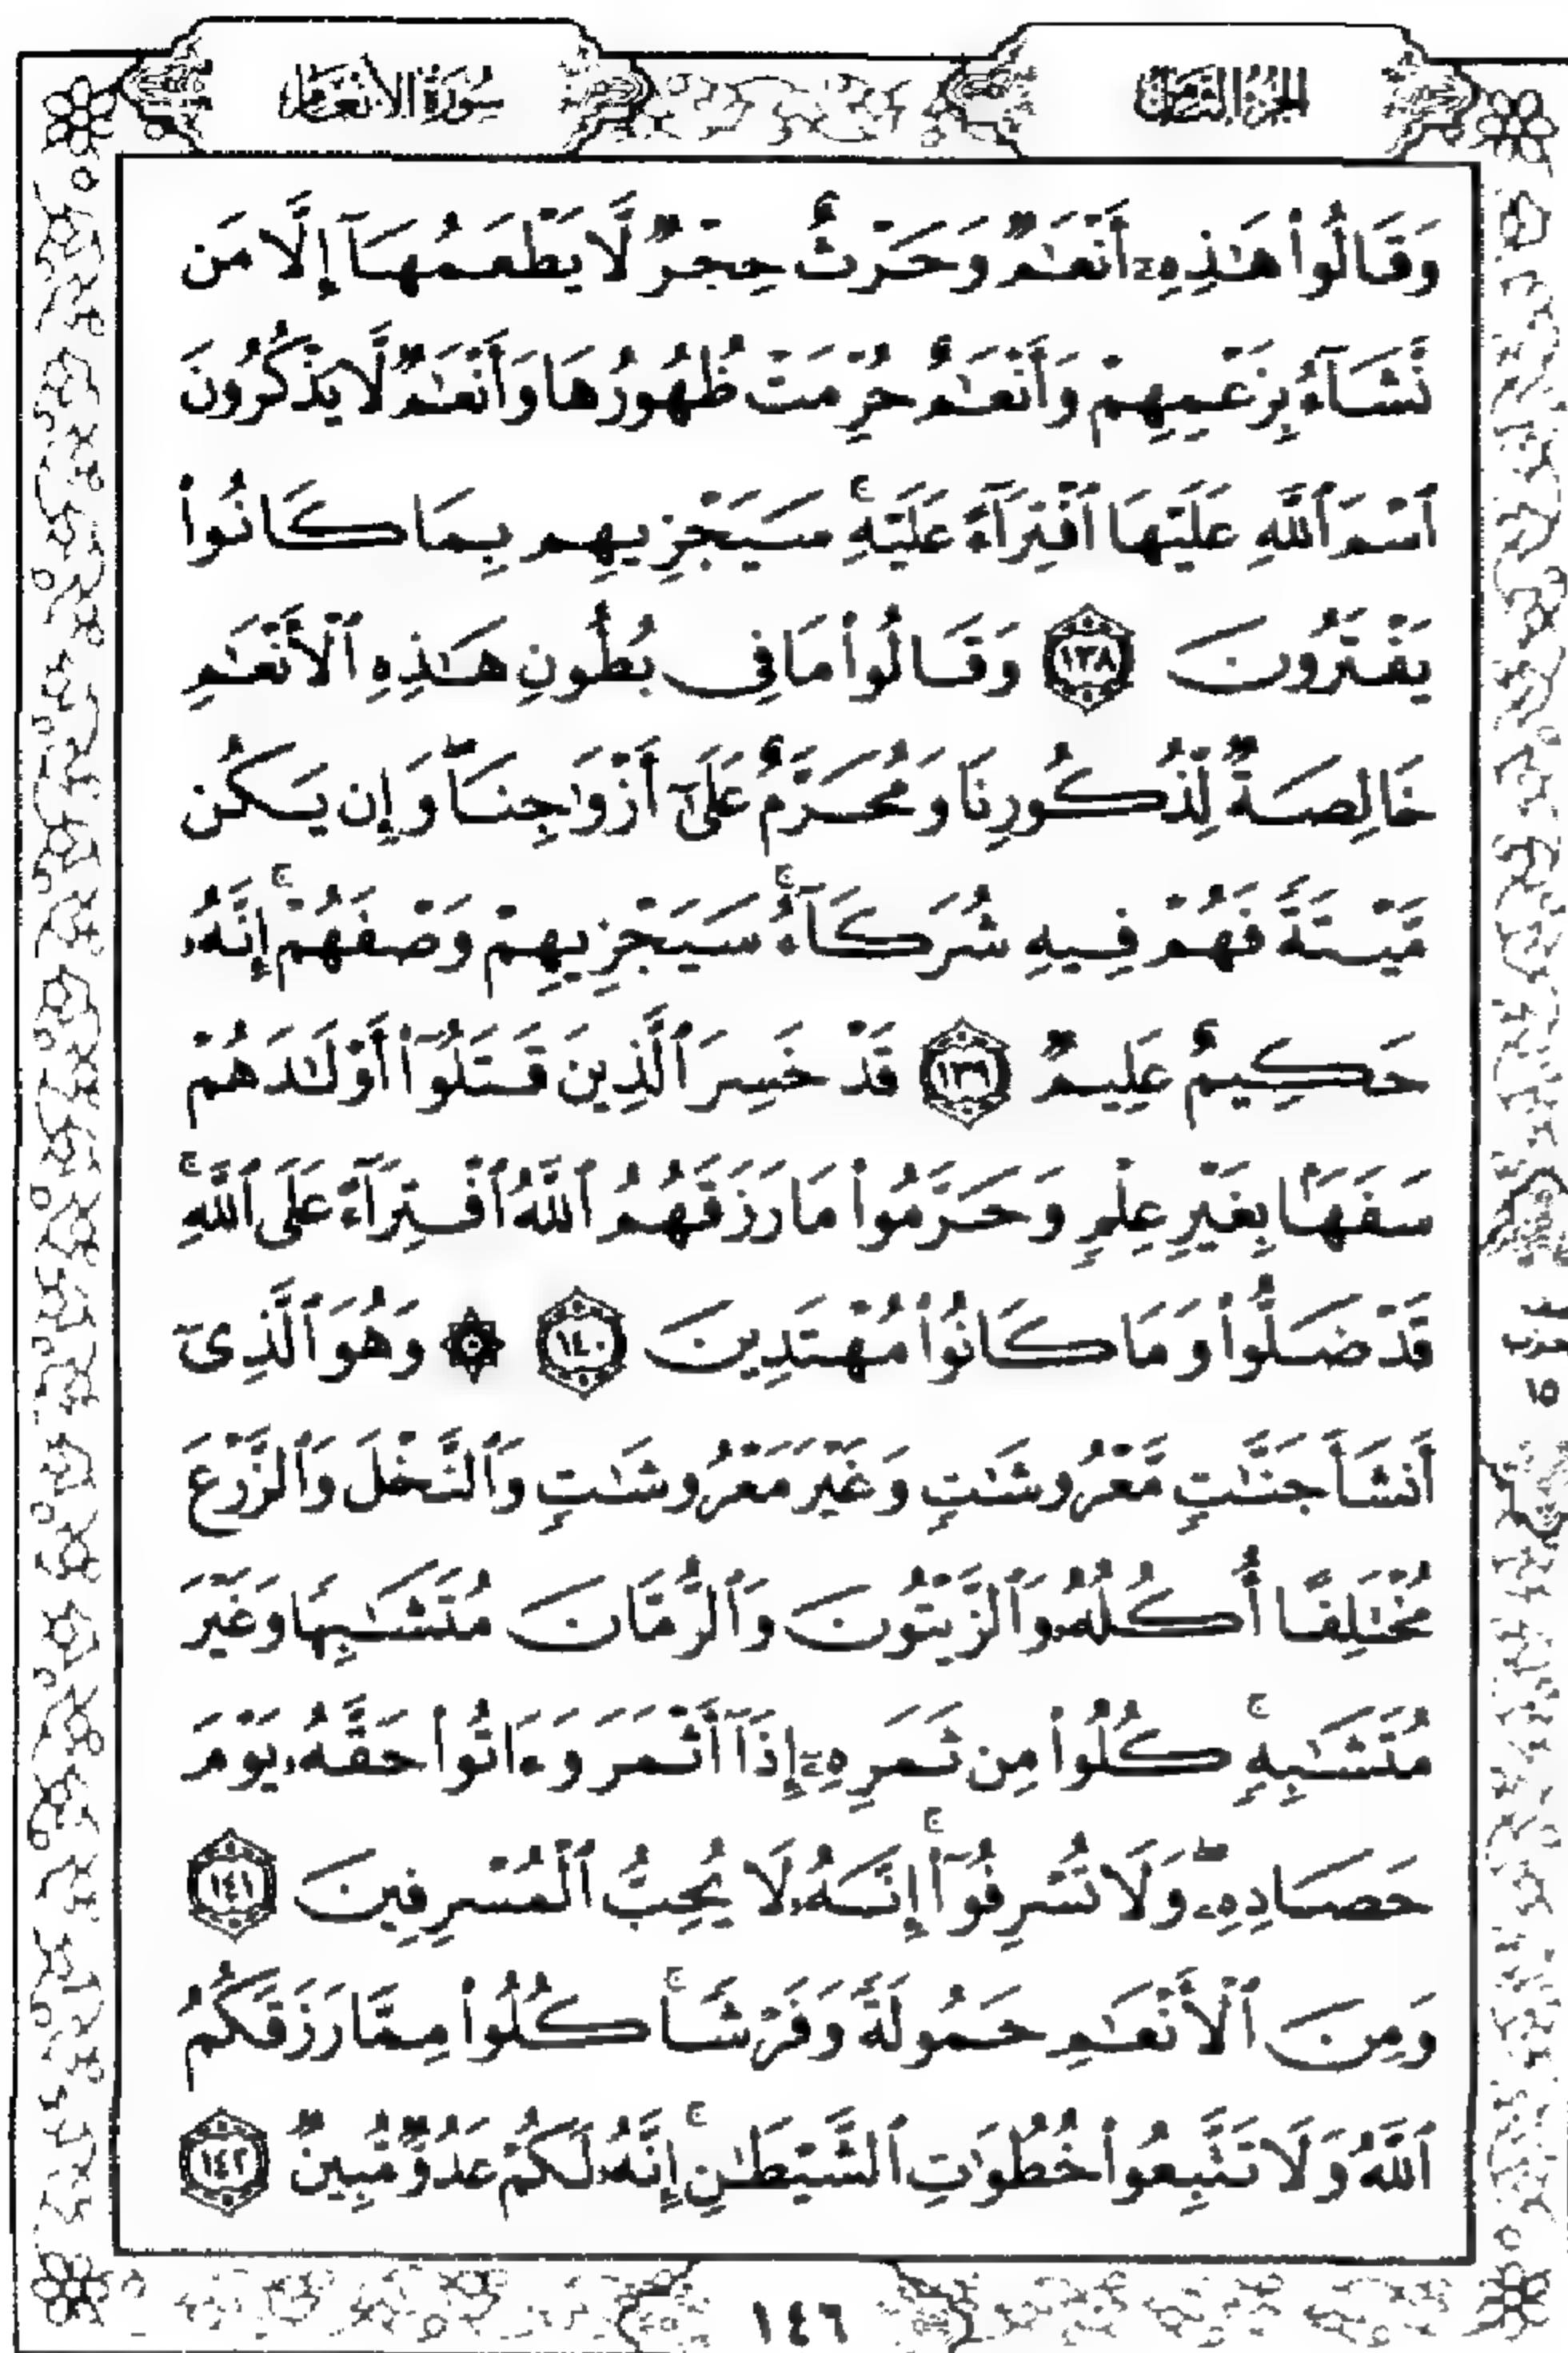 الجزء الثامن
سورة الأنعام
وَقَالُوا۟ هَـٰذِهِۦٓ أَنْعَـٰمٌ وَحَرْثٌ حِجْرٌ لَّا يَطْعَمُهَآ إِلَّا مَن
نَّشَآءُ بِزَعْمِهِمْ وَأَنْعَـٰمٌ حُرِّمَتْ ظُهُورُهَا وَأَنْعَـٰمٌ لَّا يَذْكُرُونَ
ٱسْمَ ٱللَّهِ عَلَيْهَا ٱفْتِرَآءً عَلَيْهِ ۚ سَيَجْزِيهِم بِمَا كَانُوا۟
يَفْتَرُونَ ١٣٨ وَقَالُوا۟ مَا فِى بُطُونِ هَـٰذِهِ ٱلْأَنْعَـٰمِ
خَالِصَةٌ لِّذُكُورِنَا وَمُحَرَّمٌ عَلَىٰٓ أَزْوَٰجِنَا ۖ وَإِن يَكُن
مَّيْتَةً فَهُمْ فِيهِ شُرَكَآءُ ۚ سَيَجْزِيهِمْ وَصْفَهُمْ ۚ إِنَّهُۥ
حَكِيمٌ عَلِيمٌ ١٣٩ قَدْ خَسِرَ ٱلَّذِينَ قَتَلُوٓا۟ أَوْلَـٰدَهُمْ
سَفَهًۢا بِغَيْرِ عِلْمٍ وَحَرَّمُوا۟ مَا رَزَقَهُمُ ٱللَّهُ ٱفْتِرَآءً عَلَى ٱللَّهِ ۚ
قَدْ ضَلُّوا۟ وَمَا كَانُوا۟ مُهْتَدِينَ ١٤٠ ۞ وَهُوَ ٱلَّذِىٓ
أَنشَأَ جَنَّـٰتٍ مَّعْرُوشَـٰتٍ وَغَيْرَ مَعْرُوشَـٰتٍ وَٱلنَّخْلَ وَٱلزَّرْعَ
مُخْتَلِفًا أُكُلُهُۥ وَٱلزَّيْتُونَ وَٱلرُّمَّانَ مُتَشَـٰبِهًا وَغَيْرَ
مُتَشَـٰبِهٍ ۚ كُلُوا۟ مِن ثَمَرِهِۦٓ إِذَآ أَثْمَرَ وَءَاتُوا۟ حَقَّهُۥ يَوْمَ
حَصَادِهِۦ ۖ وَلَا تُسْرِفُوٓا۟ ۚ إِنَّهُۥ لَا يُحِبُّ ٱلْمُسْرِفِينَ ١٤١
وَمِنَ ٱلْأَنْعَـٰمِ حَمُولَةً وَفَرْشًا ۚ كُلُوا۟ مِمَّا رَزَقَكُمُ
ٱللَّهُ وَلَا تَتَّبِعُوا۟ خُطُوَٰتِ ٱلشَّيْطَـٰنِ ۚ إِنَّهُۥ لَكُمْ عَدُوٌّ مُّبِينٌ ١٤٢
١٤٦